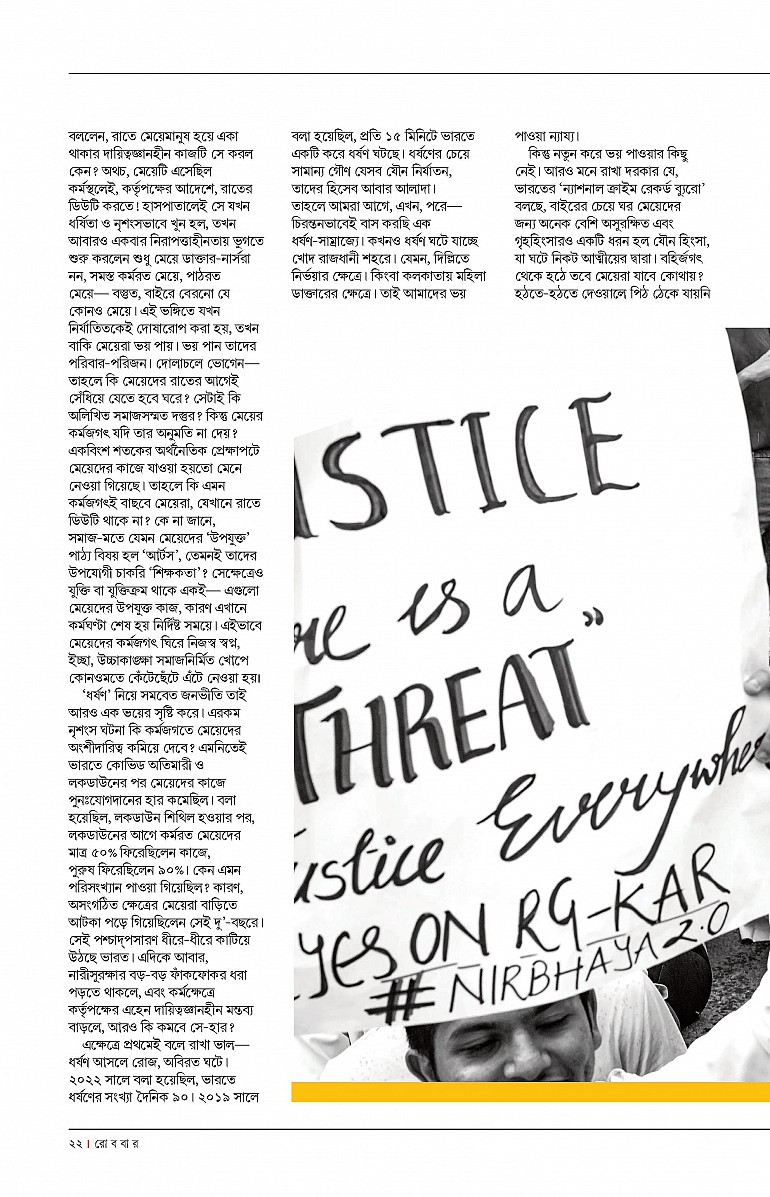 বললেন, রাতে মেয়েমানুষ হয়ে একা
থাকার দায়িত্বজ্ঞানহীন কাজটি সে করল
কেন? অথচ, মেয়েটি এসেছিল
কর্মস্থলেই, কর্তৃপক্ষের আদেশে, রাতের
ডিউটি করতে! হাসপাতালেই সে যখন
ধর্ষিতা ও নৃশংসভাবে খুন হল, তখন
আবারও একবার নিরাপত্তাহীনতায় ভুগতে
শুরু করলেন শুধু মেয়ে ডাক্তার-নার্সরা
নন, সমস্ত কর্মরত মেয়ে, পাঠরত
মেয়ে— বস্তুত, বাইরে বেরনো যে
কোনও মেয়ে। এই ভঙ্গিতে যখন
নির্যাতিতকেই দোষারোপ করা হয়, তখন
বাকি মেয়েরা ভয় পায়। ভয় পান তাদের
পরিবার-পরিজন। দোলাচলে ভোগেন—
তাহলে কি মেয়েদের রাতের আগেই
সেঁধিয়ে যেতে হবে ঘরে? সেটাই কি
অলিখিত সমাজসম্মত দস্তুর? কিন্তু মেয়ের
কর্মজগৎ যদি তার অনুমতি না দেয়?
একবিংশ শতকের অর্থনৈতিক প্রেক্ষাপটে
মেয়েদের কাজে যাওয়া হয়তো মেনে
নেওয়া গিয়েছে। তাহলে কি এমন
কর্মজগৎই বাছবে মেয়েরা, যেখানে রাতে
ডিউটি থাকে না? কে না জানে,
সমাজ-মতে যেমন মেয়েদের ‘উপযুক্ত’
পাঠ্য বিষয় হল ‘আর্টস’, তেমনই তাদের
উপযোগী চাকরি ‘শিক্ষকতা’? সেক্ষেত্রেও
যুক্তি বা যুক্তিক্রম থাকে একই— এগুলো
মেয়েদের উপযুক্ত কাজ, কারণ এখানে
কর্মঘণ্টা শেষ হয় নির্দিষ্ট সময়ে। এইভাবে
মেয়েদের কর্মজগৎ ঘিরে নিজস্ব স্বপ্ন,
ইচ্ছা, উচ্চাকাঙ্ক্ষা সমাজনির্মিত খোপে
কোনওমতে কেঁটেছেঁটে এঁটে নেওয়া হয়।
‘ধর্ষণ’ নিয়ে সমবেত জনভীতি তাই
আরও এক ভয়ের সৃষ্টি করে। এরকম
নৃশংস ঘটনা কি কর্মজগতে মেয়েদের
অংশীদারিত্ব কমিয়ে দেবে? এমনিতেই
ভারতে কোভিড অতিমারী ও
লকডাউনের পর মেয়েদের কাজে
পুনঃযোগদানের হার কমেছিল। বলা
হয়েছিল, লকডাউন শিথিল হওয়ার পর,
লকডাউনের আগে কর্মরত মেয়েদের
মাত্র ৫০% ফিরেছিলেন কাজে,
পুরুষ ফিরেছিলেন ৯০%। কেন এমন
পরিসংখ্যান পাওয়া গিয়েছিল? কারণ,
অসংগঠিত ক্ষেত্রের মেয়েরা বাড়িতে
আটকা পড়ে গিয়েছিলেন সেই দু’-বছরে।
সেই পশ্চাদ্‌পসারণ ধীরে-ধীরে কাটিয়ে
উঠছে ভারত। এদিকে আবার,
নারীসুরক্ষার বড়-বড় ফাঁকফোকর ধরা
পড়তে থাকলে, এবং কর্মক্ষেত্রে
কর্তৃপক্ষের এহেন দায়িত্বজ্ঞানহীন মন্তব্য
বাড়লে, আরও কি কমবে সে-হার?
এক্ষেত্রে প্রথমেই বলে রাখা ভাল—
ধর্ষণ আসলে রোজ, অবিরত ঘটে।
২০২২ সালে বলা হয়েছিল, ভারতে
ধর্ষণের সংখ্যা দৈনিক ৯০। ২০১৯ সালে
বলা হয়েছিল, প্রতি ১৫ মিনিটে ভারতে
একটি করে ধর্ষণ ঘটছে। ধর্ষণের চেয়ে
সামান্য গৌণ যেসব যৌন নির্যাতন,
তাদের হিসেব আবার আলাদা।
তাহলে আমরা আগে, এখন, পরে—
চিরন্তনভাবেই বাস করছি এক
ধর্ষণ-সাম্রাজ্যে। কখনও ধর্ষণ ঘটে যাচ্ছে
খোদ রাজধানী শহরে। যেমন, দিল্লিতে
নির্ভয়ার ক্ষেত্রে। কিংবা কলকাতায় মহিলা
ডাক্তারের ক্ষেত্রে। তাই আমাদের ভয়
পাওয়া ন্যায্য।
কিন্তু নতুন করে ভয় পাওয়ার কিছু
নেই। আরও মনে রাখা দরকার যে,
ভারতের ‘ন্যাশনাল ক্রাইম রেকর্ড ব্যুরো’
বলছে, বাইরের চেয়ে ঘর মেয়েদের
জন্য অনেক বেশি অসুরক্ষিত এবং
গৃহহিংসারও একটি ধরন হল যৌন হিংসা,
যা ঘটে নিকট আত্মীয়ের দ্বারা। বহির্জগৎ
থেকে হঠে তবে মেয়েরা যাবে কোথায়?
হঠতে-হঠতে দেওয়ালে পিঠ ঠেকে যায়নি
STICE
re is a
THREAT”
ustice Everywhe
YES ON RG-KAR
#NIRBHAYA2.0
২২ | রো ব বা র